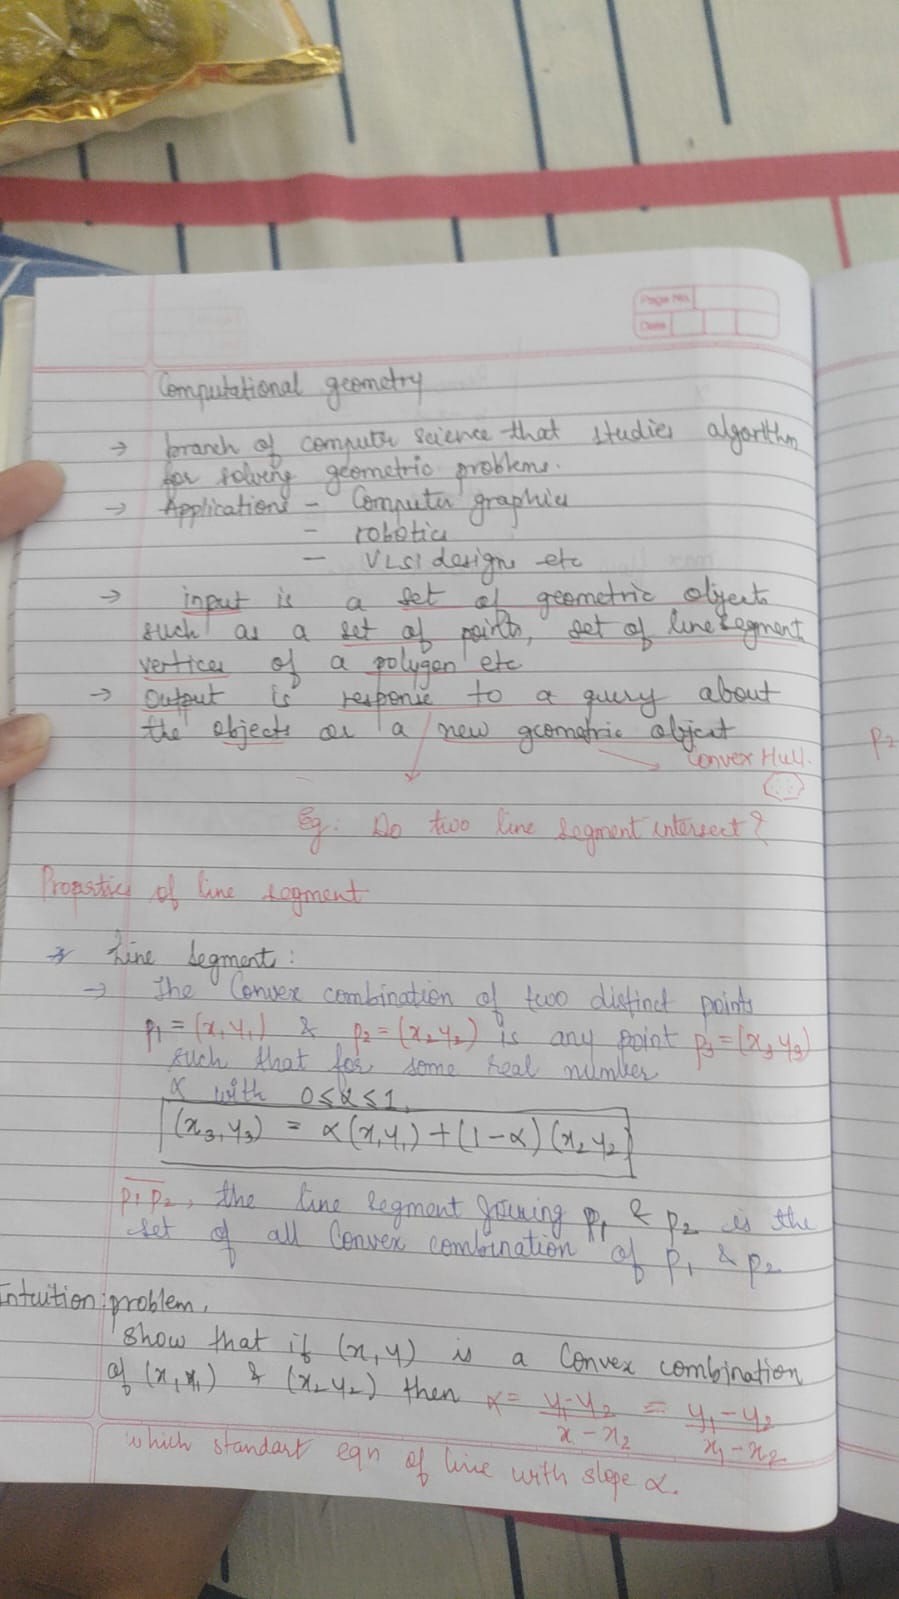 Page No.
Date
Computational geometry
→ branch of computer science that studies algorithm
for solving geometric problems.
→ Applications - Computer graphics
- robotics
- VLSI design etc
→ input is a set of geometric objects
such as a set of points, set of line segment
vertices of a polygon etc
→ Output is response to a query about
the objects or a new geometric object
Convex Hull.
Eg: Do two line segment intersect?
Properties of line segment
Line segment:
→ The Convex combination of two distinct points
p₁ = (x₁y₁) & p₂ = (x₂y₂) is any point p₃ = (x₃y₃)
such that for some real number
α with 0≤α≤1.
(x₃,y₃) = α(x₁y₁) + (1-α)(x₂y₂)
p₁p₂, the line segment joining p₁ & p₂ is the
set of all convex combination of p₁ & p₂
Intuition: problem,
Show that if (x,y) is a Convex combination
of (x₁x₁) & (x₂y₂) then α = y-y₂/x-x₂ = y₁-y₂/x₁-x₂
which standart eqn of line with slope α.
p₂